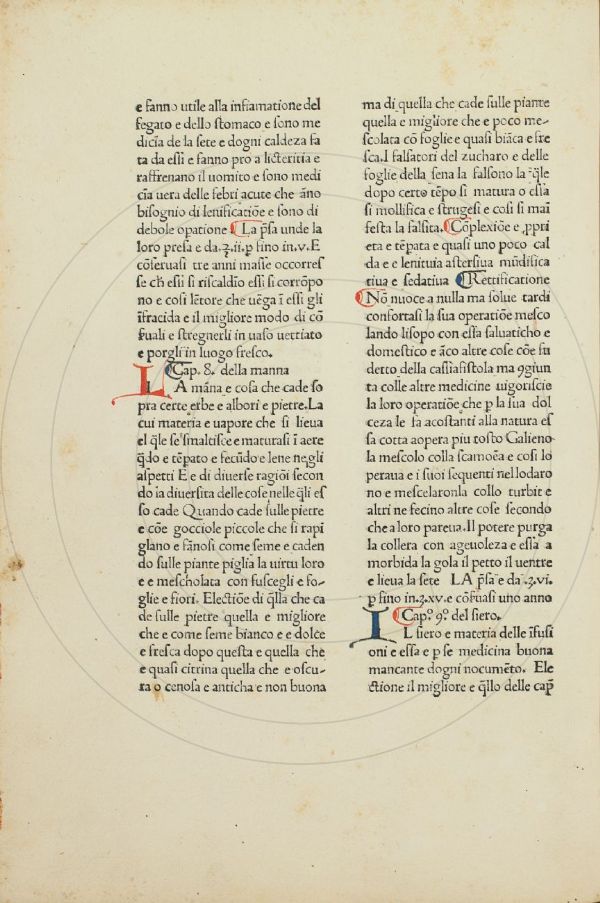 e fanno utile alla infiamatione del
fegato e dello ſtomaco e ſono me
dicīa de la ſete e dogni caldeza fa
ta da eſſi e fanno pro a licteritia e
raffrenano il uomito e ſono medi
cīa uera delle febri acute che āno
biſognio di lenificatiōe e ſono di
debole opatione La p̄ſa unde la
loro preſa e da.ʒ.ii.p fino in.v.E
cōſeruaſi tre anni maſſe occorreſ
ſe ch̄ eſſi ſi riſcaldīo eſſi ſi corrōpo
no e coſi lētore che uēga ī eſſi gli
īfracida e il migliore modo di cō
ſuali e ſtregnerli in uaſo uettiato
e porgli in luogo freſco.
Cap. 8. della manna
LA māna e coſa che cade ſo
pra certe erbe e albori e pietre.La
cui materia e uapore che ſi lieua
el q̄le ſe ſmaltiſce e maturaſi ī aere
q̄do e tēpato e fecūdo e lene negli
aſpetti E e di diuerſe ragiōi ſecon
do la diuerſita delle coſe nelle q̄li eſ
ſo cade Quando cade ſulle pietre
e cōe gocciole piccole che ſi rapi
glano e fānoſi come ſeme e caden
do ſulle piante piglia la uirtu loro
e e meſcholata con fuſcegli e fo-
glie e fiori. Electiōe di q̄lla che ca
de ſulle pietre quella e migliore
che e come ſeme bianco e e dolce
e freſca dopo queſta e quella che
e quaſi citrina quella che e oſcu-
ra o cenoſa e anticha e non buona
ma di quella che cade ſulle piante
quella e migliore che e poco me-
ſcolata cō foglie e quaſi biāca e fre
ſca.I falſatori del zucharo e delle
foglie della ſena la falſono la q̄le
dopo certo tēpo ſi matura o eſſa
ſi mollifica e ſtrugeſi e coſi ſi mani
feſta la falſita. Cōplexiōe e ꝓpri
eta e tēpata e quaſi uno poco cal
da e e lenitiua aſterſiua mūdifica
tiua e ſedatiua Rettificatione
Nō nuoce a nulla ma ſolue tardi
confortaſi la ſua operatiōe meſco
lando liſopo con eſſa ſaluaticho e
domeſtico e āco altre coſe cōe ſu
detto della caſſiafiſtola ma ꝯgiun
ta colle altre medicine uigoriſcie
la loro operatiōe che p la ſua dol
ceza le fa acoſtanti alla natura eſ
ſa cotta aopera piu toſto Galieno
la meſcolo colla ſcamōea e coſi lo
peraua e i ſuoi ſequenti nel lodaro
no e meſcelaronla collo turbit e
altri ne fecino altre coſe ſecondo
che a loro pareua.Il potere purga
la collera con ageuoleza e eſſa a
morbida la gola il petto il uentre
e lieua la ſete LA p̄ſa e da.ʒ.vi.
p fino in.ʒ.xv.e cōſuaſi uno anno
Cap.º 9.º del ſiero.
IL ſiero e materia delle īfuſi
oni e eſſa e p ſe medicina buona
mancante dogni nocumēto. Ele
ctione il migliore e q̄llo delle cap̄